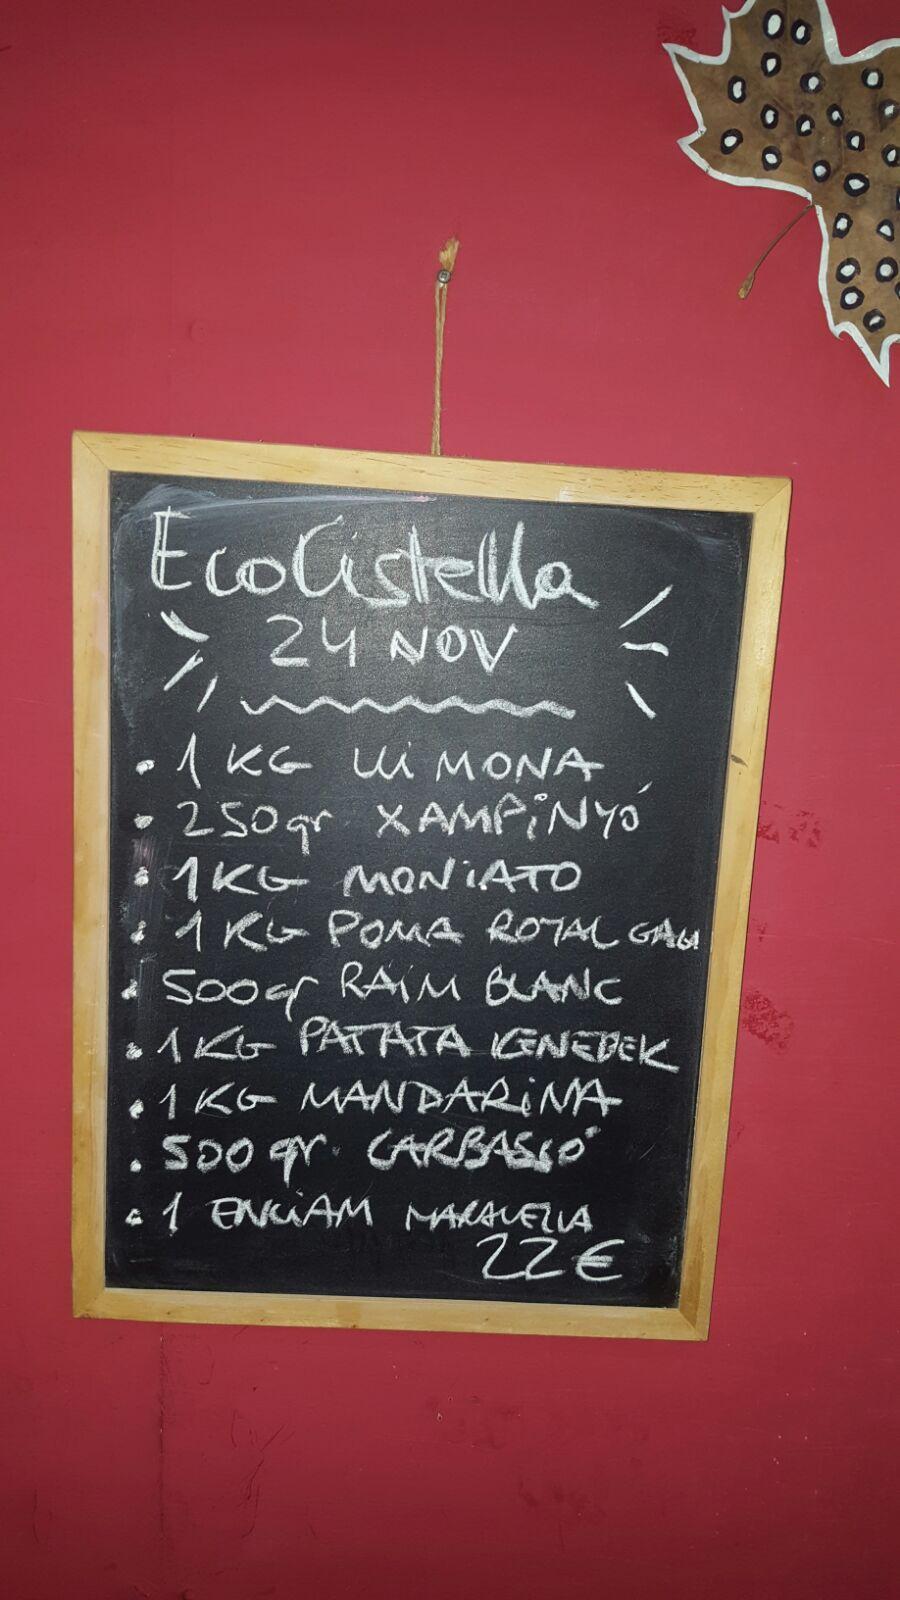 EcoCistella
24 NOV
• 1 KG LLIMONA
• 250gr XAMPiNYÓ
• 1KG MONiATO
• 1 KG POMA ROYAL GALA
• 500gr RAiM BLANC
• 1KG PATATA KENEBEK
• 1 KG MANDARiNA
• 500 gr. CARBASSÓ
• 1 ENCiAM MARAVELLA
22€